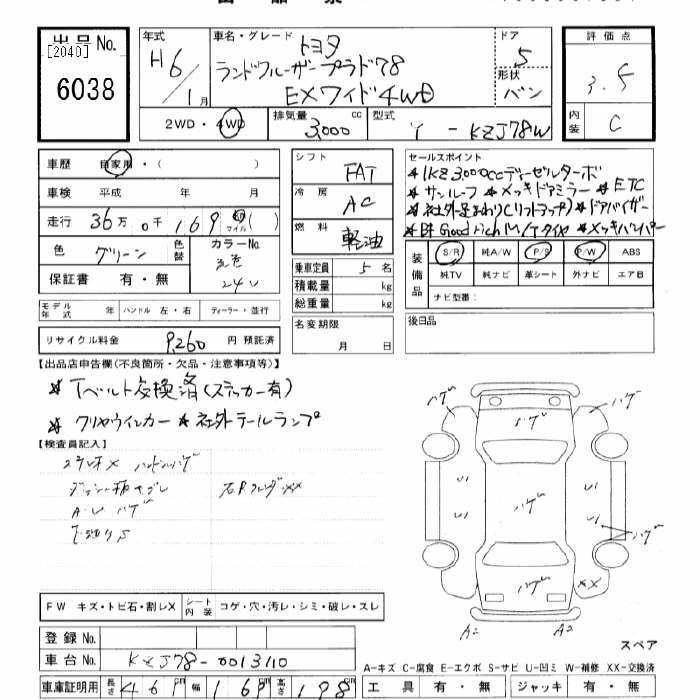 出品No.
[2040]
6038
年式
H6/1月
車名・グレード
トヨタ
ランドクルーザープラド78
EXワイド4WD
ドア
5
形状
バン
評価点
3.5
内装
C
2WD・4WD
排気量
3,000 cc
型式
Y-KZJ78W
車歴 自家用・( )
車検 平成 年 月
走行 36万0千169 km マイル ( )
色 グリーン
色替
カラーNo.
保証書 有・無
シフト FAT
冷房 AC
燃料 軽油
乗車定員 5名
積載量 kg
総重量 kg
セールスポイント
*1KZ 3000ccディーゼルターボ
*サンルーフ *メッキドアミラー *ETC
*社外足まわり(リフトアップ) *ドアバイザー
*BF Good rich M/Tタイヤ *メッキバンパー
装備品
S/R 純A/W P/S P/W ABS
純TV 純ナビ 革シート 外ナビ エアB
ナビ型番:
モデル年式 年 ハンドル 左・右 ディーラー・並行
リサイクル料金 9,260円 預託済
名変期限 月 日
後日品
【出品店申告欄(不良箇所・欠品・注意事項等)】
*Tベルト交換済(ステッカー有)
*クリヤウインカー *社外テールランプ
【検査員記入】
ハンドルハゲ
右Rフェンダ××
A.W ハゲ
ハゲ ハゲ ハゲ
U1 U1
ハゲ
U1 U1
ハゲ
ハゲ ××
A2 A2
FW キズ・トビ石・割レX シート内装 コゲ・穴・汚レ・シミ・破レ・スレ
登録No.
車台No. KZJ78-0013110
車庫証明用 長さ 461cm 幅 169cm 高さ 198cm
スペア
A-キズ C-腐食 E-エクボ S-サビ U-凹ミ W-補修 XX-交換済
工具 有・無 ジャッキ 有・無